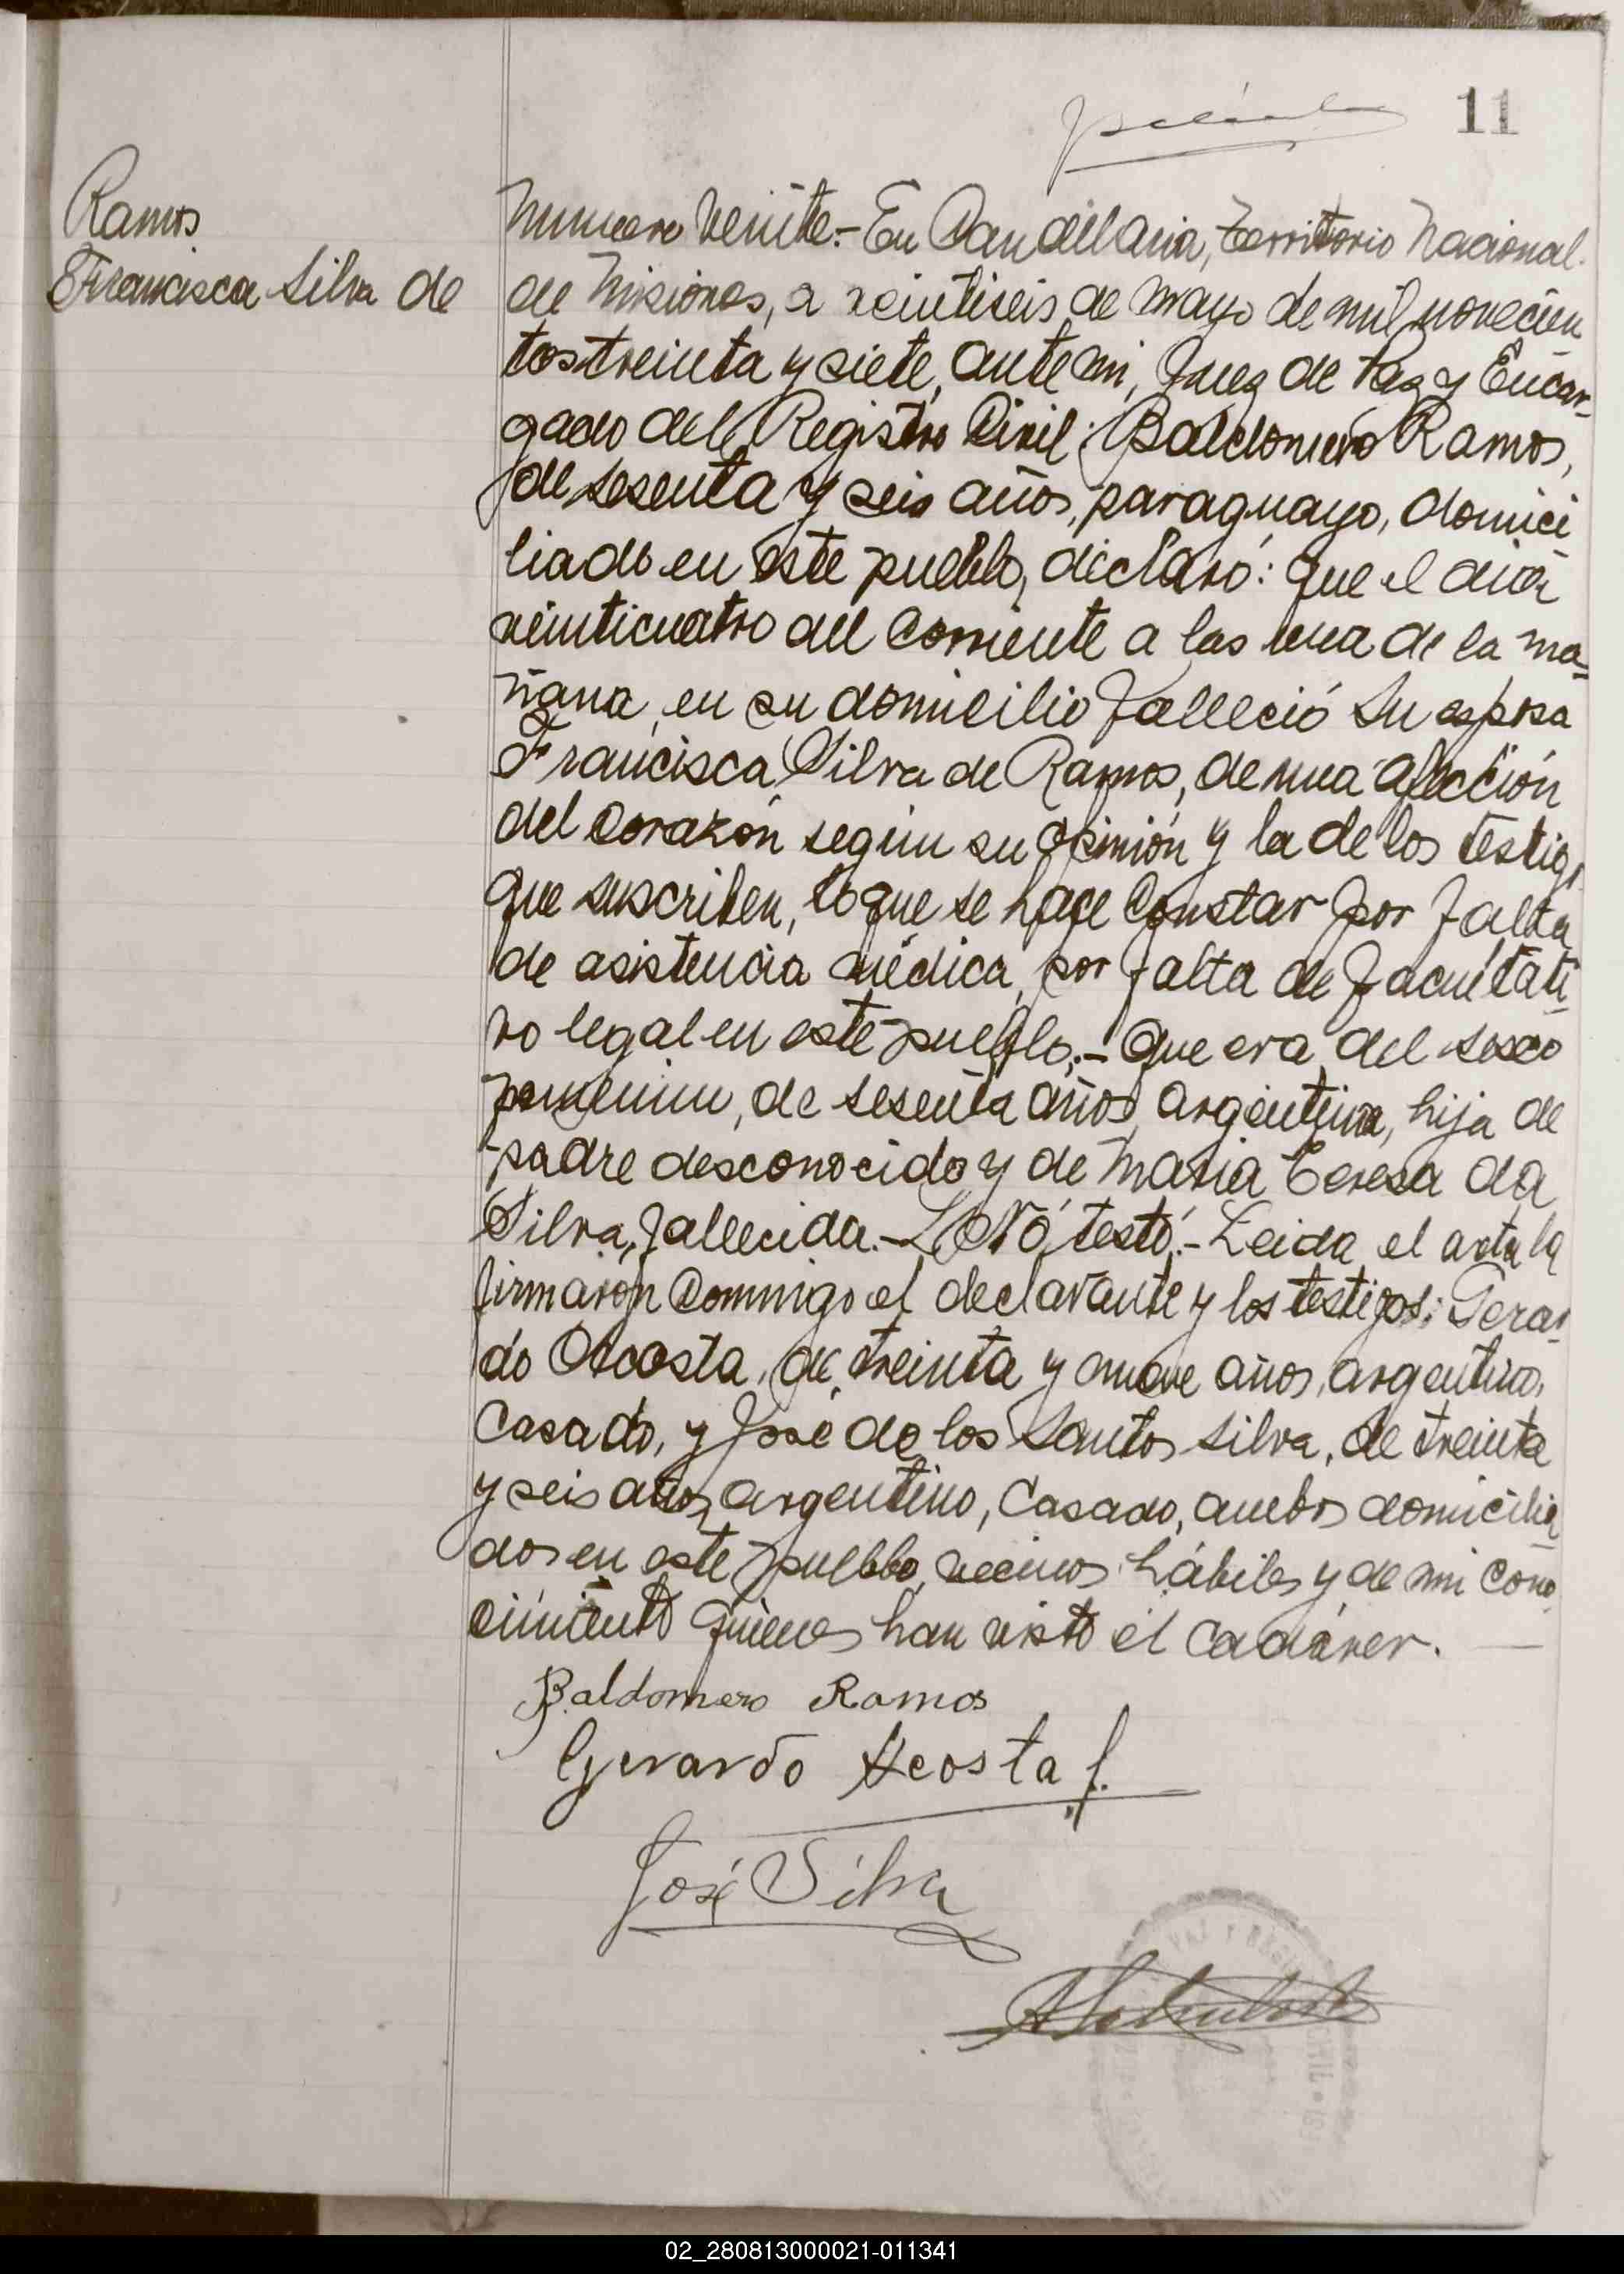 11
Ramos
Francisca Silva de
Numero veinte.- En Candelaria, Territorio Nacional
de Misiones, a veintiseis de mayo de mil novecien
tos treinta y siete, ante mi, Juez de Paz y Encar-
gado del Registro Civil: Baldomero Ramos,
de sesenta y seis años, paraguayo, domici
liado en este pueblo, declaró: que el dia
veinticuatro del corriente a las una de la ma-
ñana, en su domicilio falleció su esposa
Francisca Silva de Ramos, de una afección
del corazón según su opinión y la de los testigos
que suscriben, lo que se hace constar por falta
de asistencia médica, por falta de facultati
vo legal en este pueblo.- Que era del sexo
femenino, de sesenta años, argentina, hija de
padre desconocido y de Maria Teresa da
Silva, fallecida.- No testó.- Leida el acta la
firmaron conmigo el declarante y los testigos: Gerar-
do Acosta, de treinta y nueve años, argentino,
casado, y José de los Santos Silva, de treinta
y seis años, argentino, casado, ambos domicilia
dos en este pueblo, vecinos hábiles y de mi cono
cimiento quienes han visto el cadáver.
Baldomero Ramos
Gerardo Acosta f.
José Silva
02_280813000021-011341